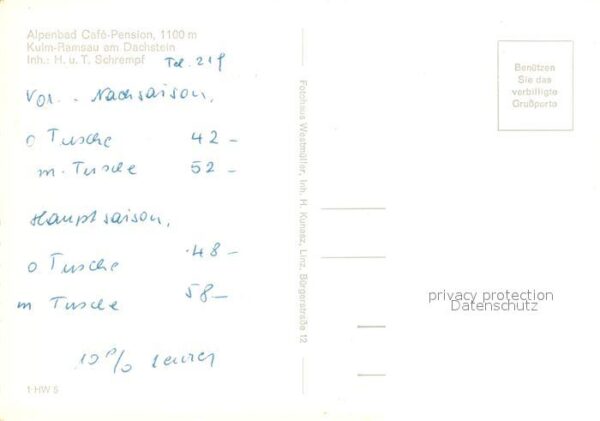 Alpenbad Café-Pension, 1100 m
Kulm-Ramsau am Dachstein
Inh.: H. u. T. Schrempf
Tel. 219
Vor.- Nachsaison,
o Tusche 42 –
m. Tusche 52 –
Hauptsaison,
o Tusche 48 –
m Tusche 58 –
10 %
1 HW 5
Fotohaus Westmüller, Inh. H. Kunasz, Linz, Bürgerstraße 12
Benützen
Sie das
verbilligte
Grußporto
privacy protection
Datenschutz